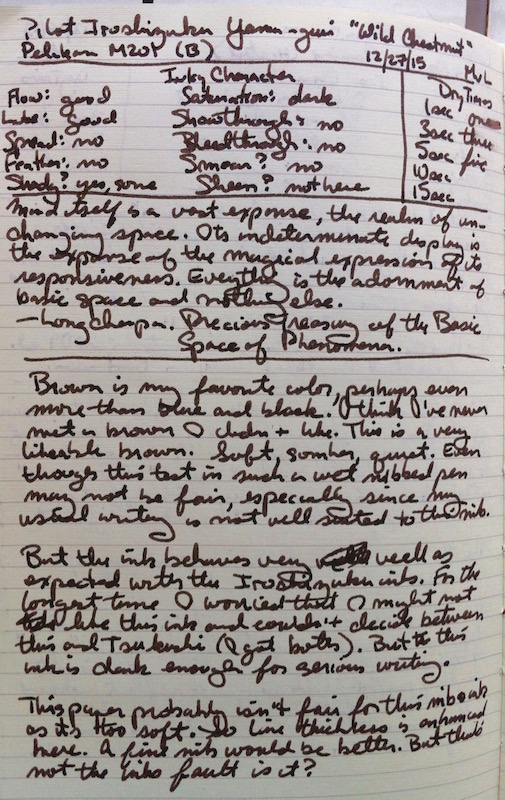 Pilot Iroshizuku Yama-guri "Wild Chestnut"
Pelikan M201 (B) 12/27/15
Inky Character
Dry Times
Flow: good Saturation: dark 1sec one
Lube: good Showthrough: no 3sec three
Spread: no Bleedthrough: no 5sec five
Feather: no Smear? no 10sec
Shady? yes, some Sheen? not here 15sec
Mind itself is a vast expanse, the realm of un-
changing space. Its indeterminate display is
the expanse of the magical expression of its
responsiveness. Everything is the adornment of
basic space and nothing else.
—Longchenpa. Precious Treasury of the Basic
Space of Phenomena.
Brown is my favorite color, perhaps even
more than blue and black. I think I've never
met a brown I didn't like. This is a very
likeable brown. Soft, somber, quiet. Even
though this test in such a wet nibbed pen
may not be fair, especially since my
usual writing is not well suited to this nib.
But the ink behaves very well as
expected with the Iroshizuku inks. For the
longest time I worried that I might not
like this ink and couldn't decide between
this and Tsukushi (I got both). But this
ink is dark enough for serious writing.
This paper probably isn't fair for this nib & ink
as its too soft. So line thickness is enhanced
here. A fine nib would be better. But that's
not the inks fault is it?